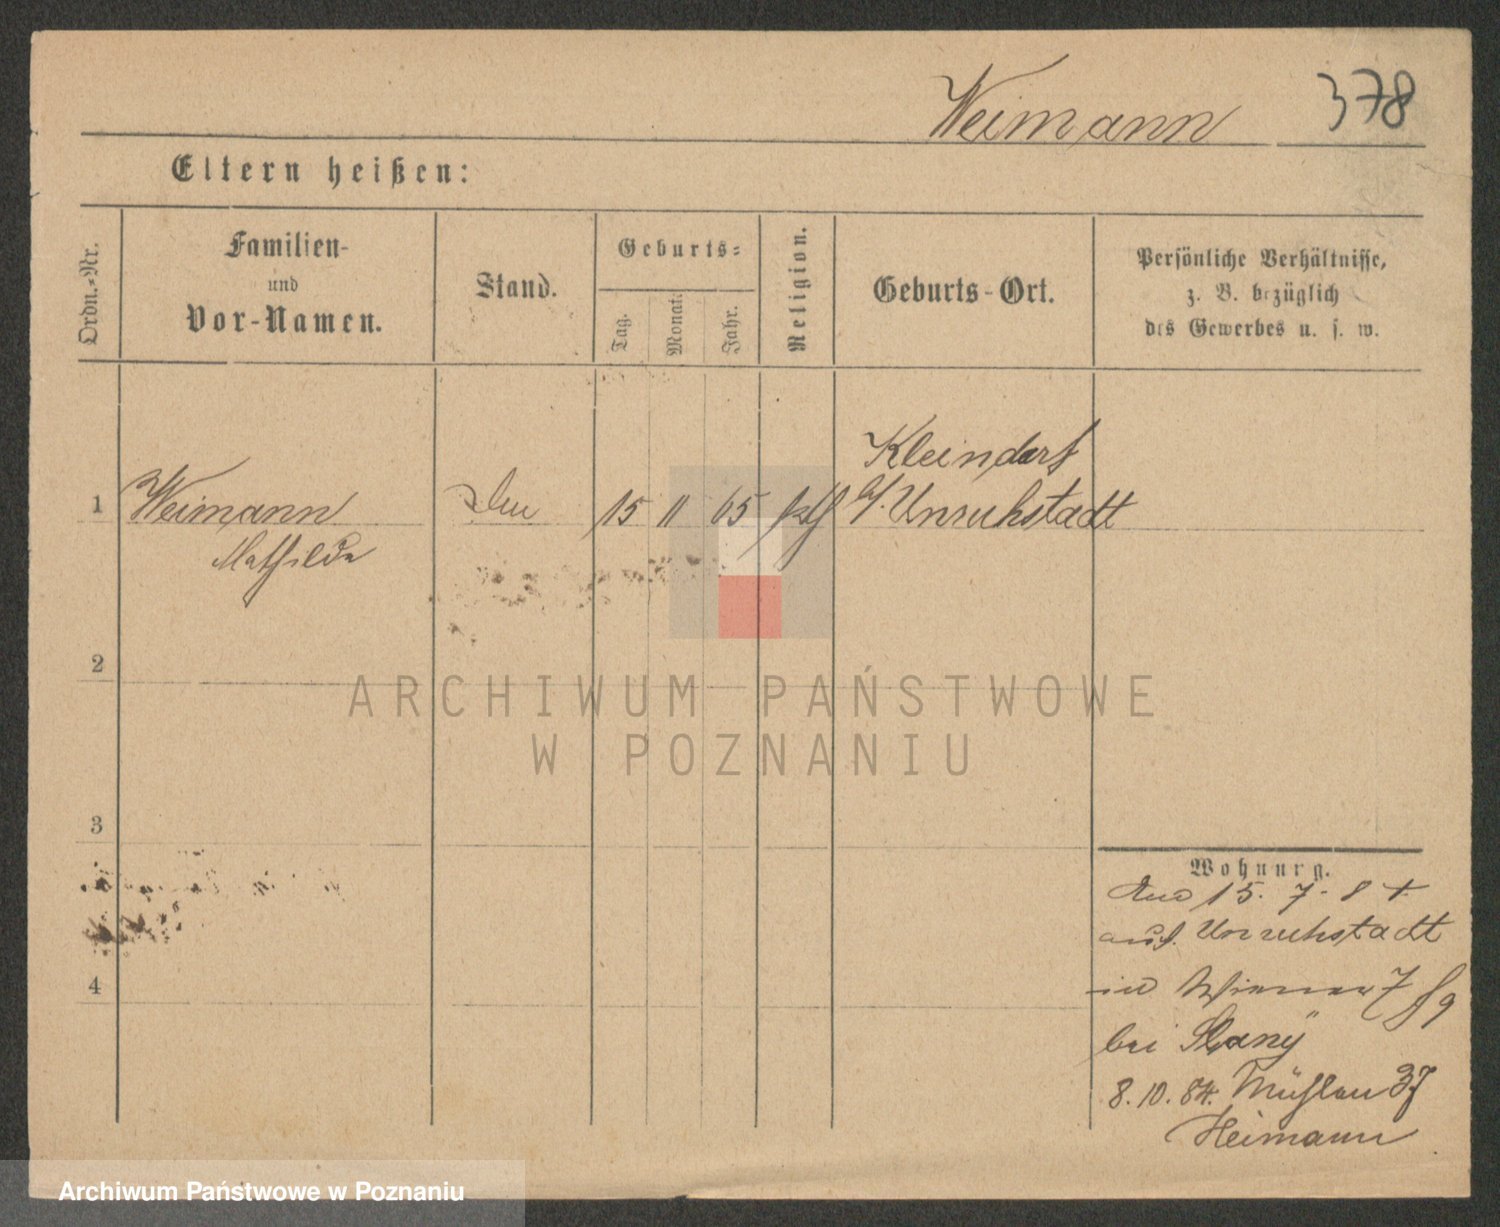 Weimann 378
Eltern heißen:
Ordn.-Nr.
Familien-
und
Vor-Namen.
Stand.
Geburts-
Tag.
Monat.
Jahr.
Religion.
Geburts-Ort.
Persönliche Verhältnisse,
z. B. bezüglich
des Gewerbes u. s. w.
Kleindorf
1 Weimann 15 11 65 b/. Unruhstadt
Mathilde
2
3
4
Wohnung.
15. 7. 84.
aus. Unruhstadt
in Wiener
bei
8. 10. 84. Mühlen 37
Heimann
ARCHIWUM PAŃSTWOWE
W POZNANIU
Archiwum Państwowe w Poznaniu